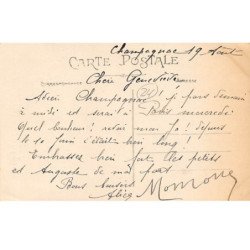 Champagnac 19 Aout
CARTE POSTALE
Chère Geneviève
Adieu Champagnac ! je pars demain
à midi et serai à Paris mercredi
Quel bonheur ! revoir mon Jo ! depuis
le 10 Juin c'était bien long !
Embrasse bien fort les petits
et Auguste de ma part
Bons baisers